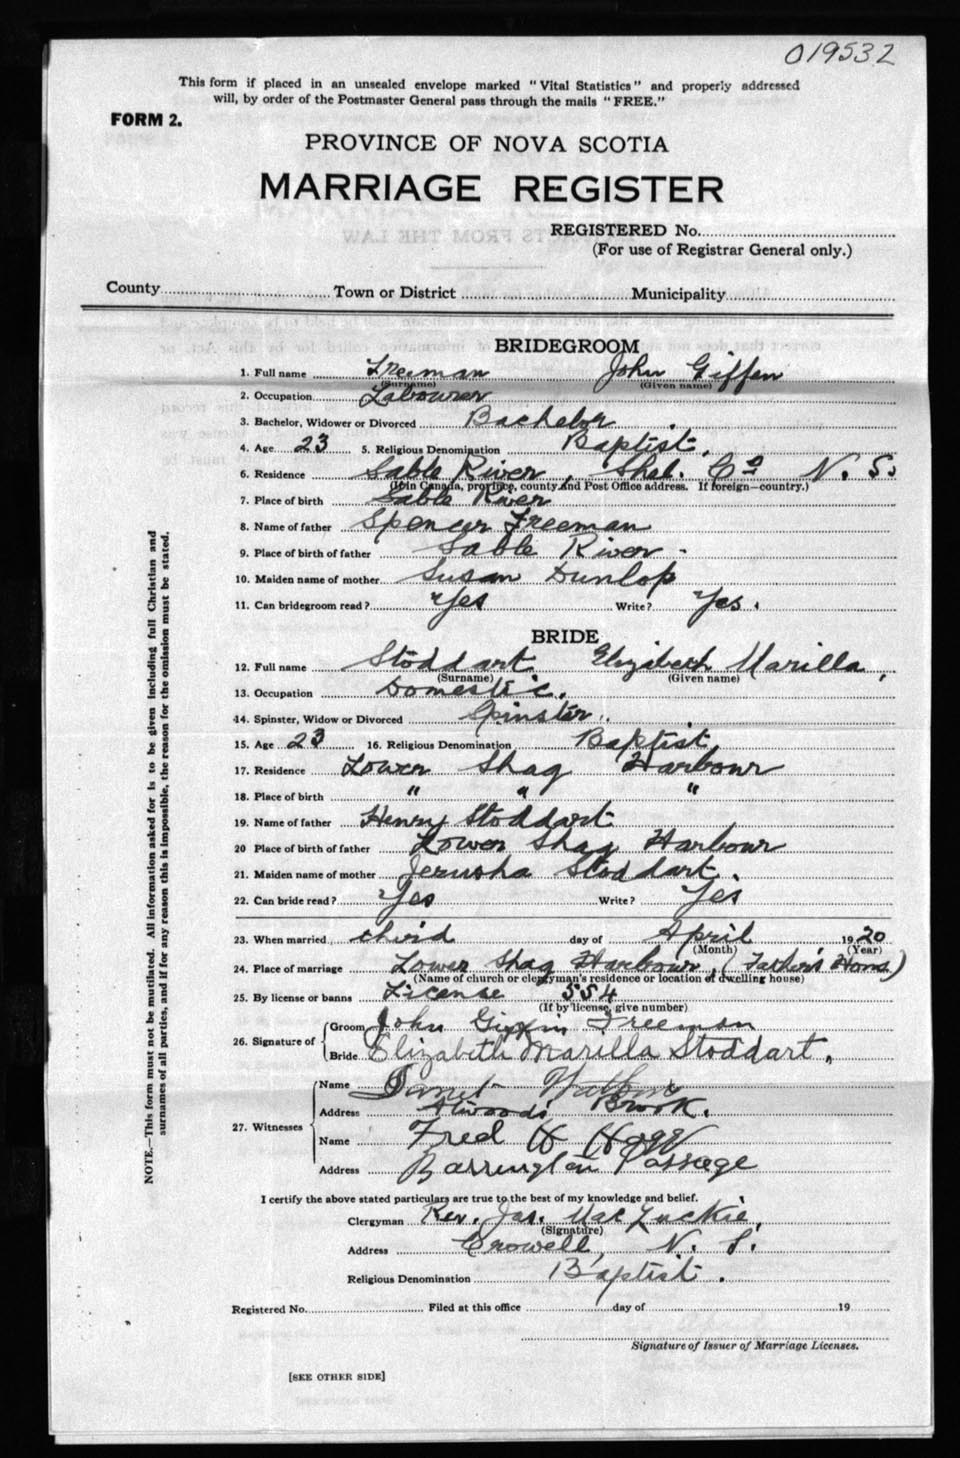 019532
This form if placed in an unsealed envelope marked "Vital Statistics" and properly addressed
will, by order of the Postmaster General pass through the mails "FREE."
FORM 2.
PROVINCE OF NOVA SCOTIA
MARRIAGE REGISTER
REGISTERED No.
(For use of Registrar General only.)
County Town or District Municipality
BRIDEGROOM
1. Full name Freeman John Giffen
(Surname) (Given name)
2. Occupation Labourer
3. Bachelor, Widower or Divorced Bachelor
4. Age 23 5. Religious Denomination Baptist,
6. Residence Sable River, Shel. Co N. S.
(If in Canada, province, county and Post Office address. If foreign—country.)
7. Place of birth Sable River
8. Name of father Spencer Freeman
9. Place of birth of father Sable River
10. Maiden name of mother Susan Dunlop
11. Can bridegroom read? Yes Write? Yes.
BRIDE
12. Full name Stoddart Elizabeth Marilla,
(Surname) (Given name)
13. Occupation Domestic.
14. Spinster, Widow or Divorced Spinster.
15. Age 23 16. Religious Denomination Baptist
17. Residence Lower Shag Harbour
18. Place of birth " " "
19. Name of father Henry Stoddart
20 Place of birth of father Lower Shag Harbour
21. Maiden name of mother Jerusha Stoddart.
22. Can bride read? Yes Write? Yes
23. When married third day of April 1920
(Month) (Year)
24. Place of marriage Lower Shag Harbour, (Father's Home)
(Name of church or clergyman's residence or location of dwelling house)
25. By license or banns License 554
(If by license, give number)
26. Signature of
Groom John Giffin Freeman
Bride Elizabeth Marilla Stoddart,
27. Witnesses
Name
Address Atwoods Brook.
Name Fred H Hogg
Address Barrington Passage
I certify the above stated particulars are true to the best of my knowledge and belief.
Clergyman Rev. Jas. MacLuckie,
(Signature)
Address Crowell, N. S.
Religious Denomination Baptist.
Registered No. Filed at this office day of 19
Signature of Issuer of Marriage Licenses.
[SEE OTHER SIDE]
NOTE.—This form must not be mutilated. All information asked for is to be given including full Christian and
surnames of all parties, and if for any reason this is impossible, the reason for the omission must be stated.